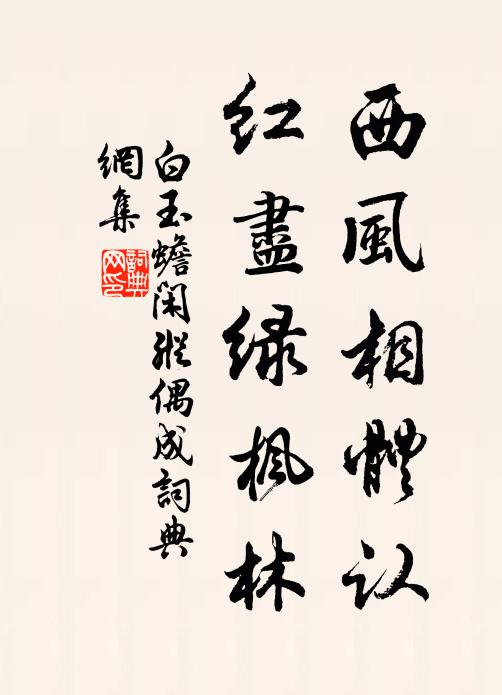 西風相體认
紅盡緑楓林
白玉蟾閑縱偶成詞典
網集
詞典
网印